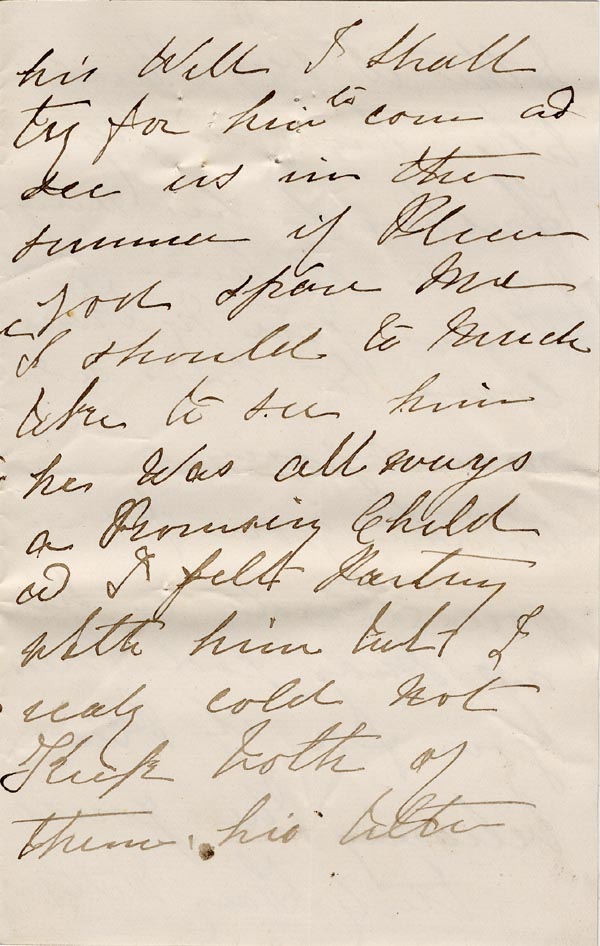 his Will I shall
try for him to come ad
see us in the
summer if Please
god spare Me
I should to Much
like to see him
he Was all ways
a Promising Child
ad I felt Parting
With him but I
realy cold not
Keep both of
them. his letter